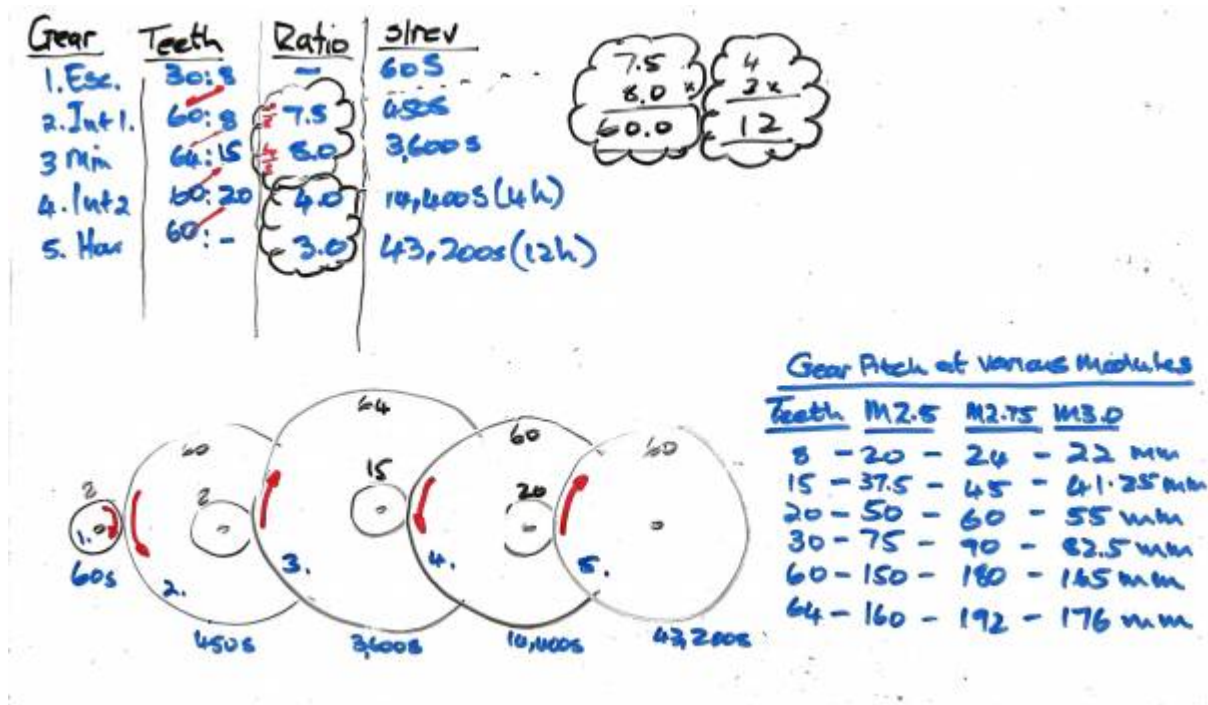 Gear Teeth Ratio s/rev
1. Esc. 30:8 - 60S
2. Int 1. 60:8 60/8 7.5 450S
3 Min 64:15 64/8 8.0 3,600 s
4. Int 2 60:20 4.0 14,400S (4h)
5. Hour 60:- 3.0 43,200s (12h)
7.5
8.0 x
60.0
4
3x
12
64
60
60
60
15
20
8
8
1.
2.
3.
4.
5.
60s
450s
3,600s
14,400s
43,200s
Gear Pitch at various Modules
Teeth M2.5 M2.75 M3.0
8 - 20 - 24 - 22 mm
15 - 37.5 - 45 - 41.25 mm
20 - 50 - 60 - 55 mm
30 - 75 - 90 - 82.5 mm
60 - 150 - 180 - 165 mm
64 - 160 - 192 - 176 mm